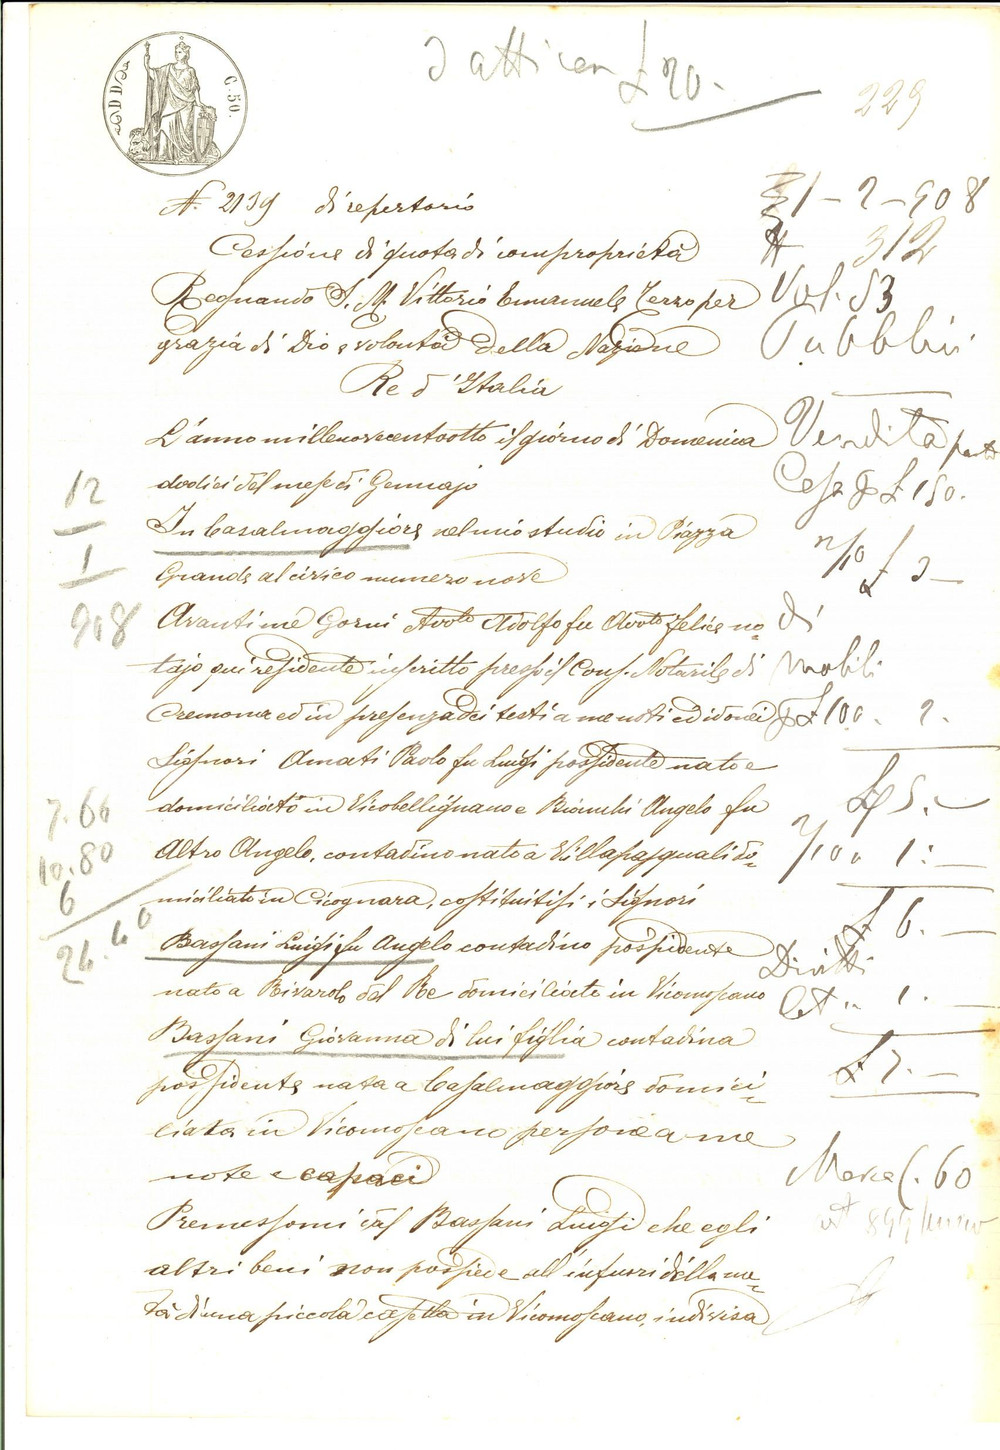 DD
C. 50.
3 atti cen £ 20.-
229
N. 2139 di repertorio
Cessione di quota di comproprietà
Regnando S. M. Vittorio Emanuele Terzo per
grazia di Dio e volontà della Nazione
Re d'Italia
L'anno millenovecentootto il giorno di Domenica
dodici del mese di Gennajo
In Casalmaggiore nel mio studio in Piazza
Grande al civico numero nove
Avanti me Gorni Avvto Adolfo fu Avvto Felice no=
tajo qui residente inscritto presso il Cons. Notarile di
Cremona ed in presenza dei testi a me noti ed idonei
Signori Amati Paolo fu Luigi possidente nato e
domiciliato in Vicobellignano e Bianchi Angelo fu
Altro Angelo, contadino nato a Villapasquali do=
miciliato in Cicognara, costituitisi i Signori
Bassani Luigi fu Angelo contadino possidente
nato a Rivarolo del Re domiciliato in Vicomoscano
Bassani Giovanna di lui figlia contadina
possidente nata a Casalmaggiore domici=
liata in Vicomoscano persone a me
note e capaci
Premessomi dal Bassani Luigi che egli
altri beni non possiede all'infuori della me=
tà di una piccola casetta in Vicomoscano, indivisa
12
1
908
7.60
10.80
6
24.40
31-2-908
N 312
Vol. 53
Pubblici
Vendita parte
Casa p £ 150.
£ 3 —
di
mobili
p £ 100. 2.
£ 5. —
1: —
£ 6. —
Diritti
Cat .. 1. —
£ 7. —
C. 60